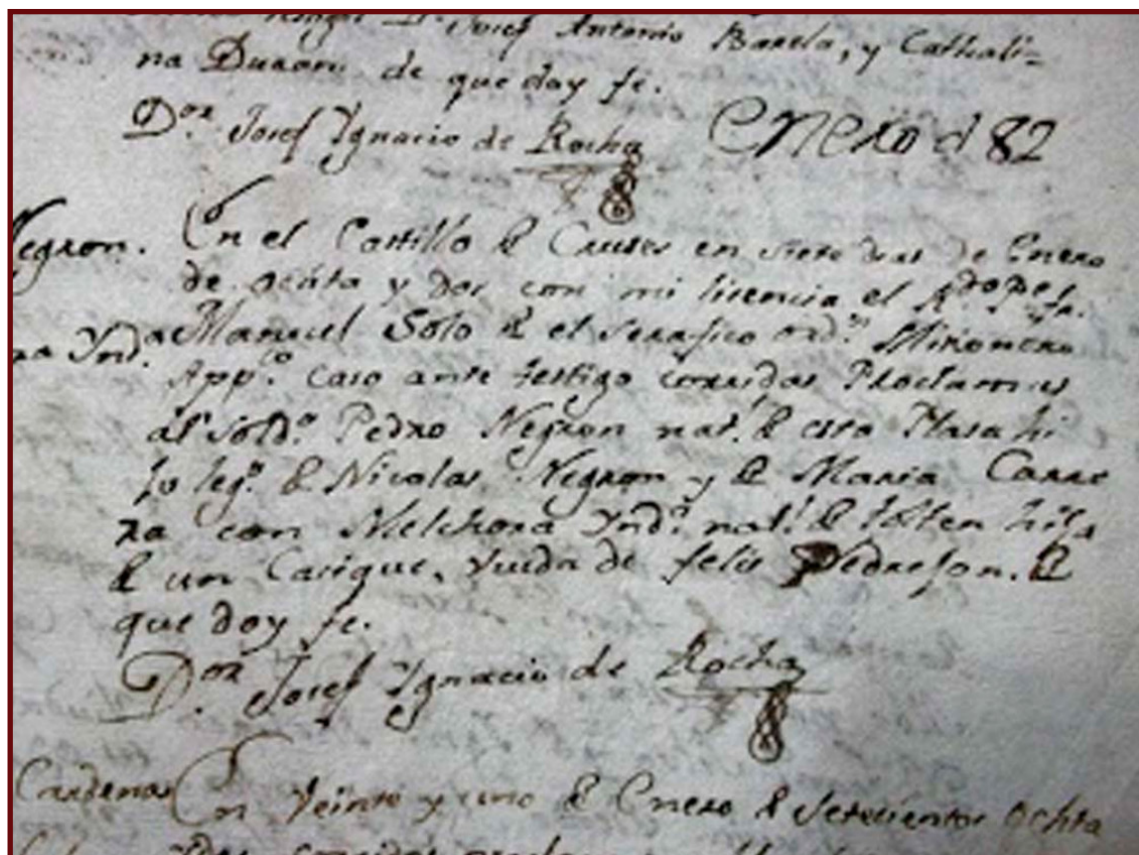 Josef Antonio Barela, y Cathali=
na Duran: de que doy fe.
D.or Josef Ygnacio de Rocha
Enero d 82
Negron.
En el Castillo de Cruses en siete dias de Enero
de ochta y dos con mi licencia el R.do P.e fr.
Ynd.a
Manuel Soto de el Serafico ord.n Misonero
App.co caso ante testigo corridas Proclamas
al sold.o Pedro Negron nat.l de esta Plasa hi
jo leg.o de Nicolas Negron y de Maria Carre
ra con Melchora Ynd.a nat.l de Tolten hija
de un Casique, Viuda de felis Pedreson. de
que doy fe.
D.or Josef Ygnacio de Rocha
Cardenas
En Veinte y uno de Enero de Setecientos Ochta